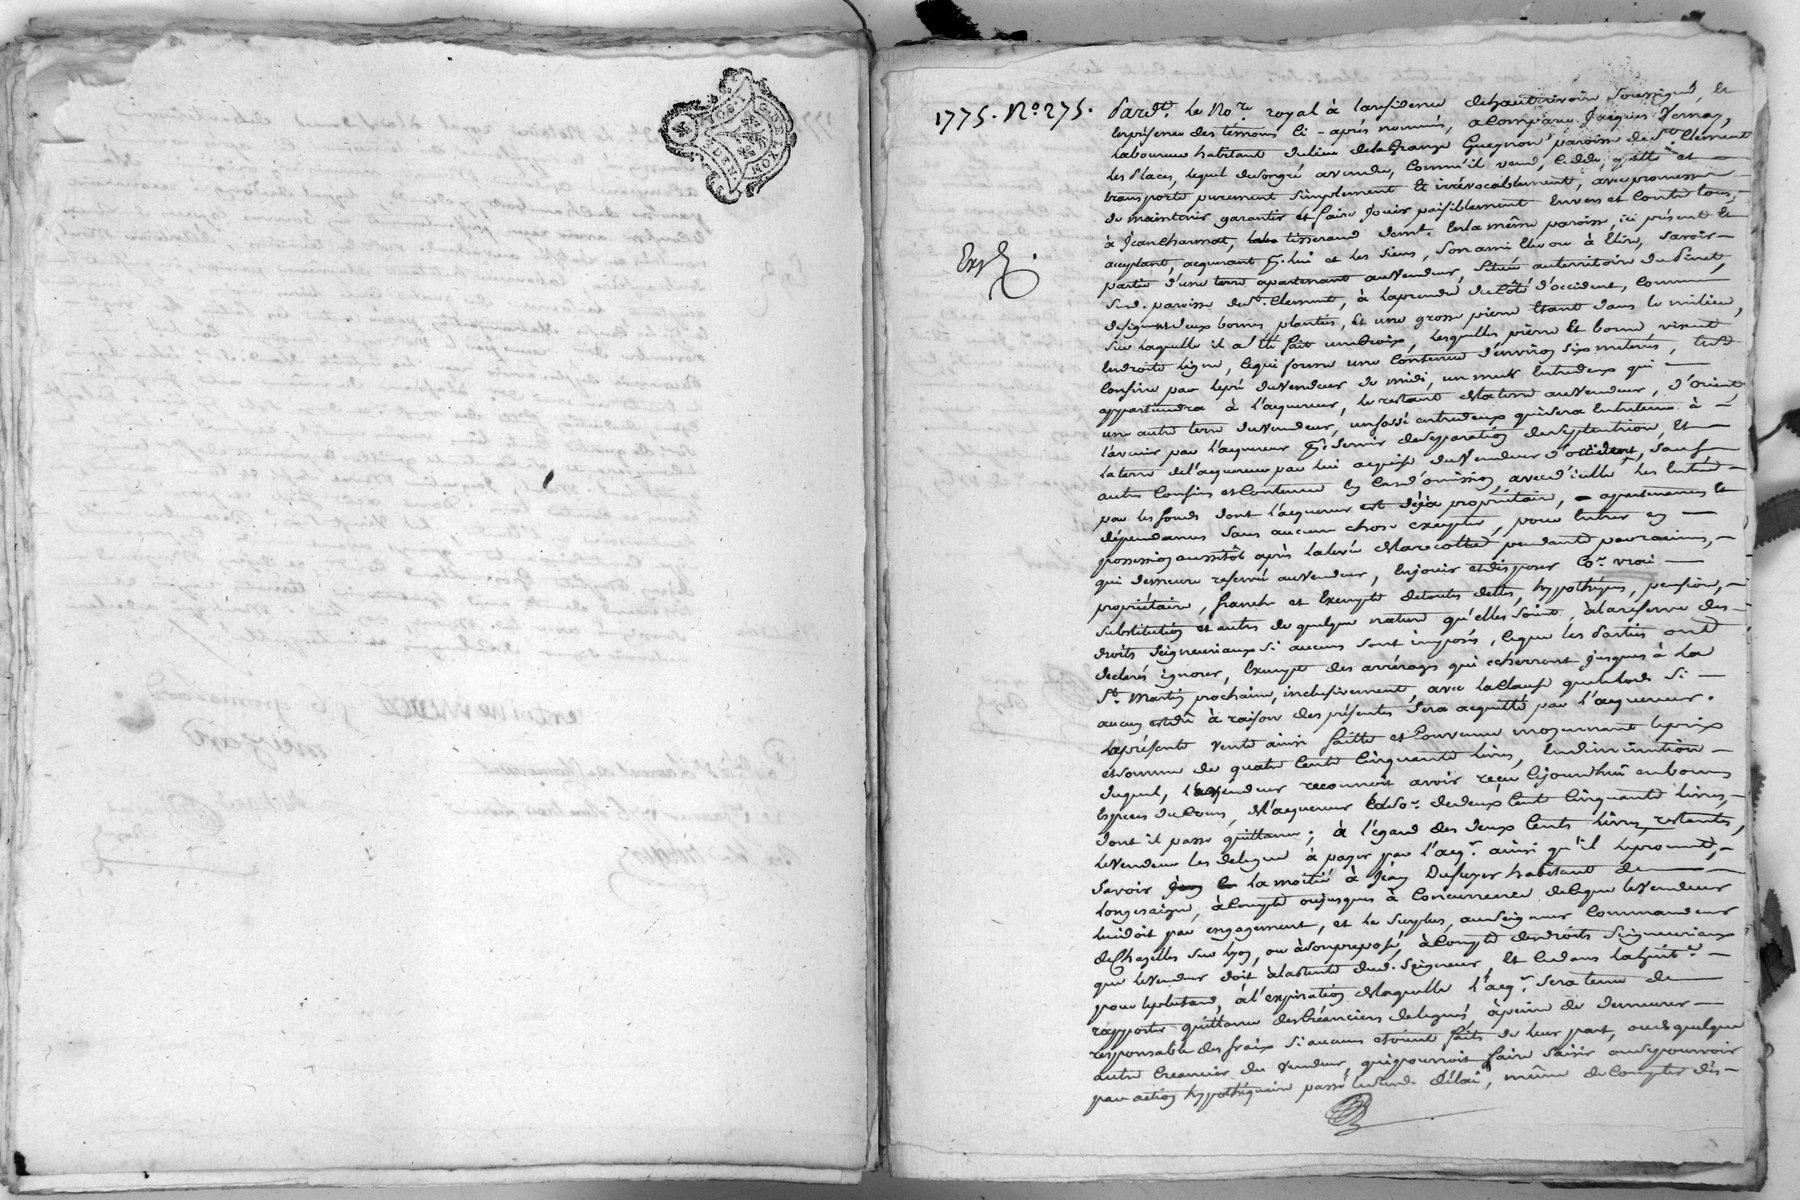 1775. N.º 275.
Pardt. le No.re royal à la résidence de hauterivoire soussigné, et
En présence des témoins ci-après nommés, a Comparu Jacques
Laboureur habitant du lieu de la Grange paroisse de St. Clement
Les Places, lequel de son gré a vendu, Comme il vend, Cède, quitte et
transporte purement Simplement Et irrévocablement, avec promesse
de maintenir garantir et faire Jouir paisiblement Envers et Contre tous,
à Jean Charmat, tisserand demt. En la même paroisse, ici présent Et
acceptant, acquerant pr. lui et les Siens, Son ami Elu ou à Elire, Savoir
partie d'une terre apartenant au Vendeur, Située au territoire du
Sud. paroisse de St. Clement, à la prendre du Côté d'occident, Comme
désignent deux bornes plantées, Et une grosse pierre Etant dans le milieu,
Sur laquelle il a été fait une Croix, Lesquelles pierre Et borne visent
En droite ligne, Ce qui forme une Contenue d'environ Six
Confine par le pré du Vendeur de midi, un mur Entredeux qui
appartiendra à l'acquereur, le restant de la terre au Vendeur, d'orient,
une autre terre du Vendeur, un fossé entredeux qui sera Entretenu à
l'avenir par l'acquereur pr. Servir de Séparation de Septentrion, Et
la terre de l'acquereur par lui acquise du Vendeur d'occident, Sauf
autres Confins et Contenue En Cas d'omission, avec d'icelle Les Entrées
par les fonds dont l'acquereur est déja propriétaire, apartenances Et
dépendances Sans aucune chose excepter, pour Entrer En
possession aussitôt après la levée de la recolte pendante par racines,
qui demeure reservée au Vendeur, En jouir et disposer Co.e vrai
propriétaire, franche et Exempte de toutes dettes, hypothèques, pension,
substitution et autres de quelque nature qu'elles Soient, à la reserve des
droits Seigneuriaux Si aucuns Sont imposés, Ce que les Parties ont
déclaré ignorer, Exempte des arrérages qui echerront jusques à la
St. Martin prochaine, inclusivement, avec la Clause que le lods Si
aucun est dû à raison des présentes Sera acquitté par l'acquereur.
La présente vente ainsi faitte et Convenue moyennant le prix
et Somme de quatre Cents Cinquante Livres, En diminution
duquel, le vendeur reconnoit avoir reçu Cejourd'hui en bonnes
Especes du Cours, de l'acquereur la So.e de deux Cents Cinquante Livres,
dont il passe quittance; à l'egard des deux Cents Livres restantes,
le Vendeur les delegue à payer par l'acq.r ainsi qu'il le promet,
Savoir la moitié à Jean Dufuyer habitant de
Longesaigne, à Compte ou jusques à Concurrence de Ce que le Vendeur
lui doit par engagement, et le Surplus, au Seigneur Commandeur
de Chazelles Sur Lyon, ou à Son preposé, à Compte des droits Seigneuriaux
que le Vendeur doit à la rente dud. Seigneur, Et Ce dans la huit.e
pour le plutard, à l'expiration de laquelle l'acq.r Sera tenu de
rapporter quittance des Créanciers delegués, à peine de demeurer
responsable des fraix Si aucuns etoient faits de leur part, ou de quelque
autre Creancier du Vendeur, qui pourroit faire Saisir ou se pourvoir
par action hypothéquaire passé led. délai, même de Compter dès